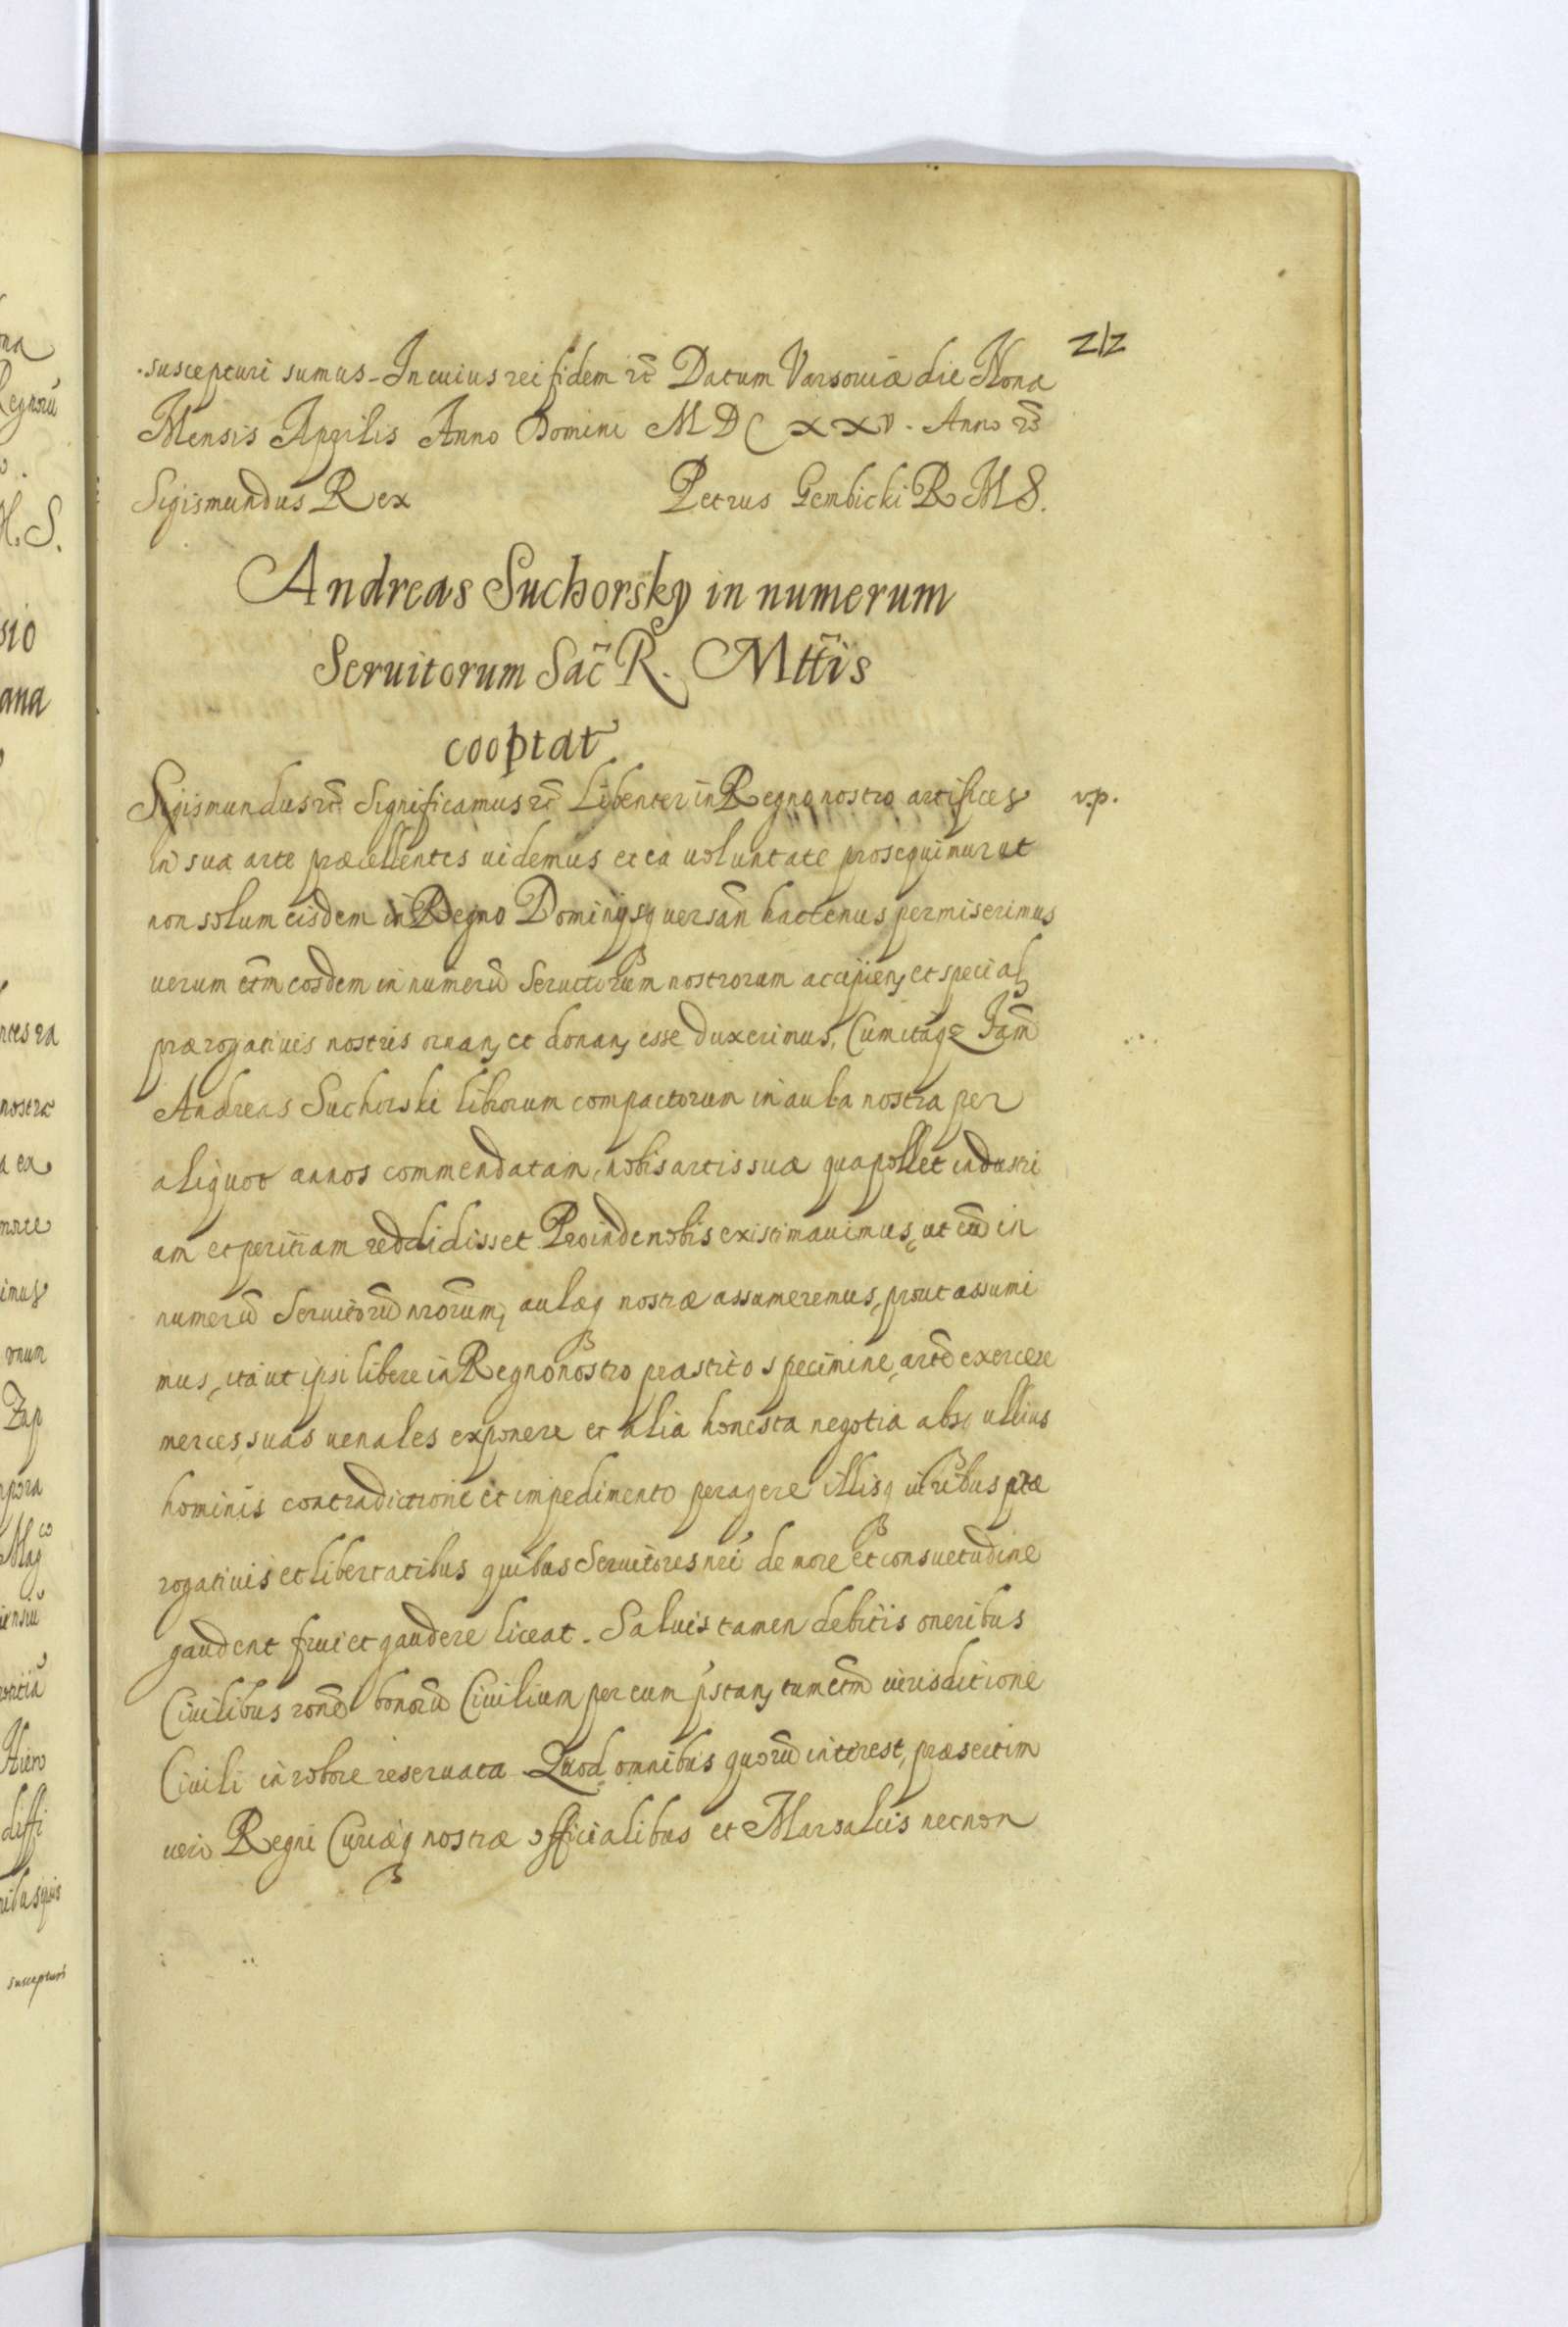 212
suscepturi sumus. In cuius rei fidem rc Datum Varsoviæ die Nona
Mensis Aprilis Anno Domini MDCXXV. Anno rc
Sigismundus Rex Petrus Gembicki R M S.
Andreas Suchorsky in numerum
Seruitorum Sac̃ R. Mttis
cooptat
Sigismundus rc Significamus rc Libenter in Regno nostro artifices v.p.
in sua arte præcellentes uidemus et ea uoluntate prosequimur ut
non solum eisdem in Regno Dominijsq uersañ hactenus permiserimus
uerum etm̃ eosdem in numerũ Seruitorum nostrorum accipien, et special,
prærogatiuis nostris ornan, et donan, esse duxerimus, Cum itaqz Fam̃
Andreas Suchorski librorum compactorum in aula nostra per
aliquot annos commendatam, nobis artis suæ qua pollet industri
am et peritiam reddidisset Proinde nobis existimauimus, ut eũ in
numerũ Seruitorũ nrõrum, aulæq nostræ assumeremus, prout assumi
mus, ita ut ipsi libere in Regno nostro præstito specimine, artẽ exercere
merces suas uenales exponere et alia honesta negotia absq ullius
hominis contradictione et impedimento peragere illisq iuribus præ
rogatiuis et libertatibus quibus Seruitores nri de more et consuetudine
gaudent frui et gaudere liceat. Saluis tamen debitis oneribus
Ciuilibus rone bonorũ Ciuilium per eum pstan, tum etm̃ iurisditione
Ciuili in robore reseruata. Quod omnibus quorũ interest, præsertim
uero Regni Curiæq nostræ officialibus et Marsalcis necnon